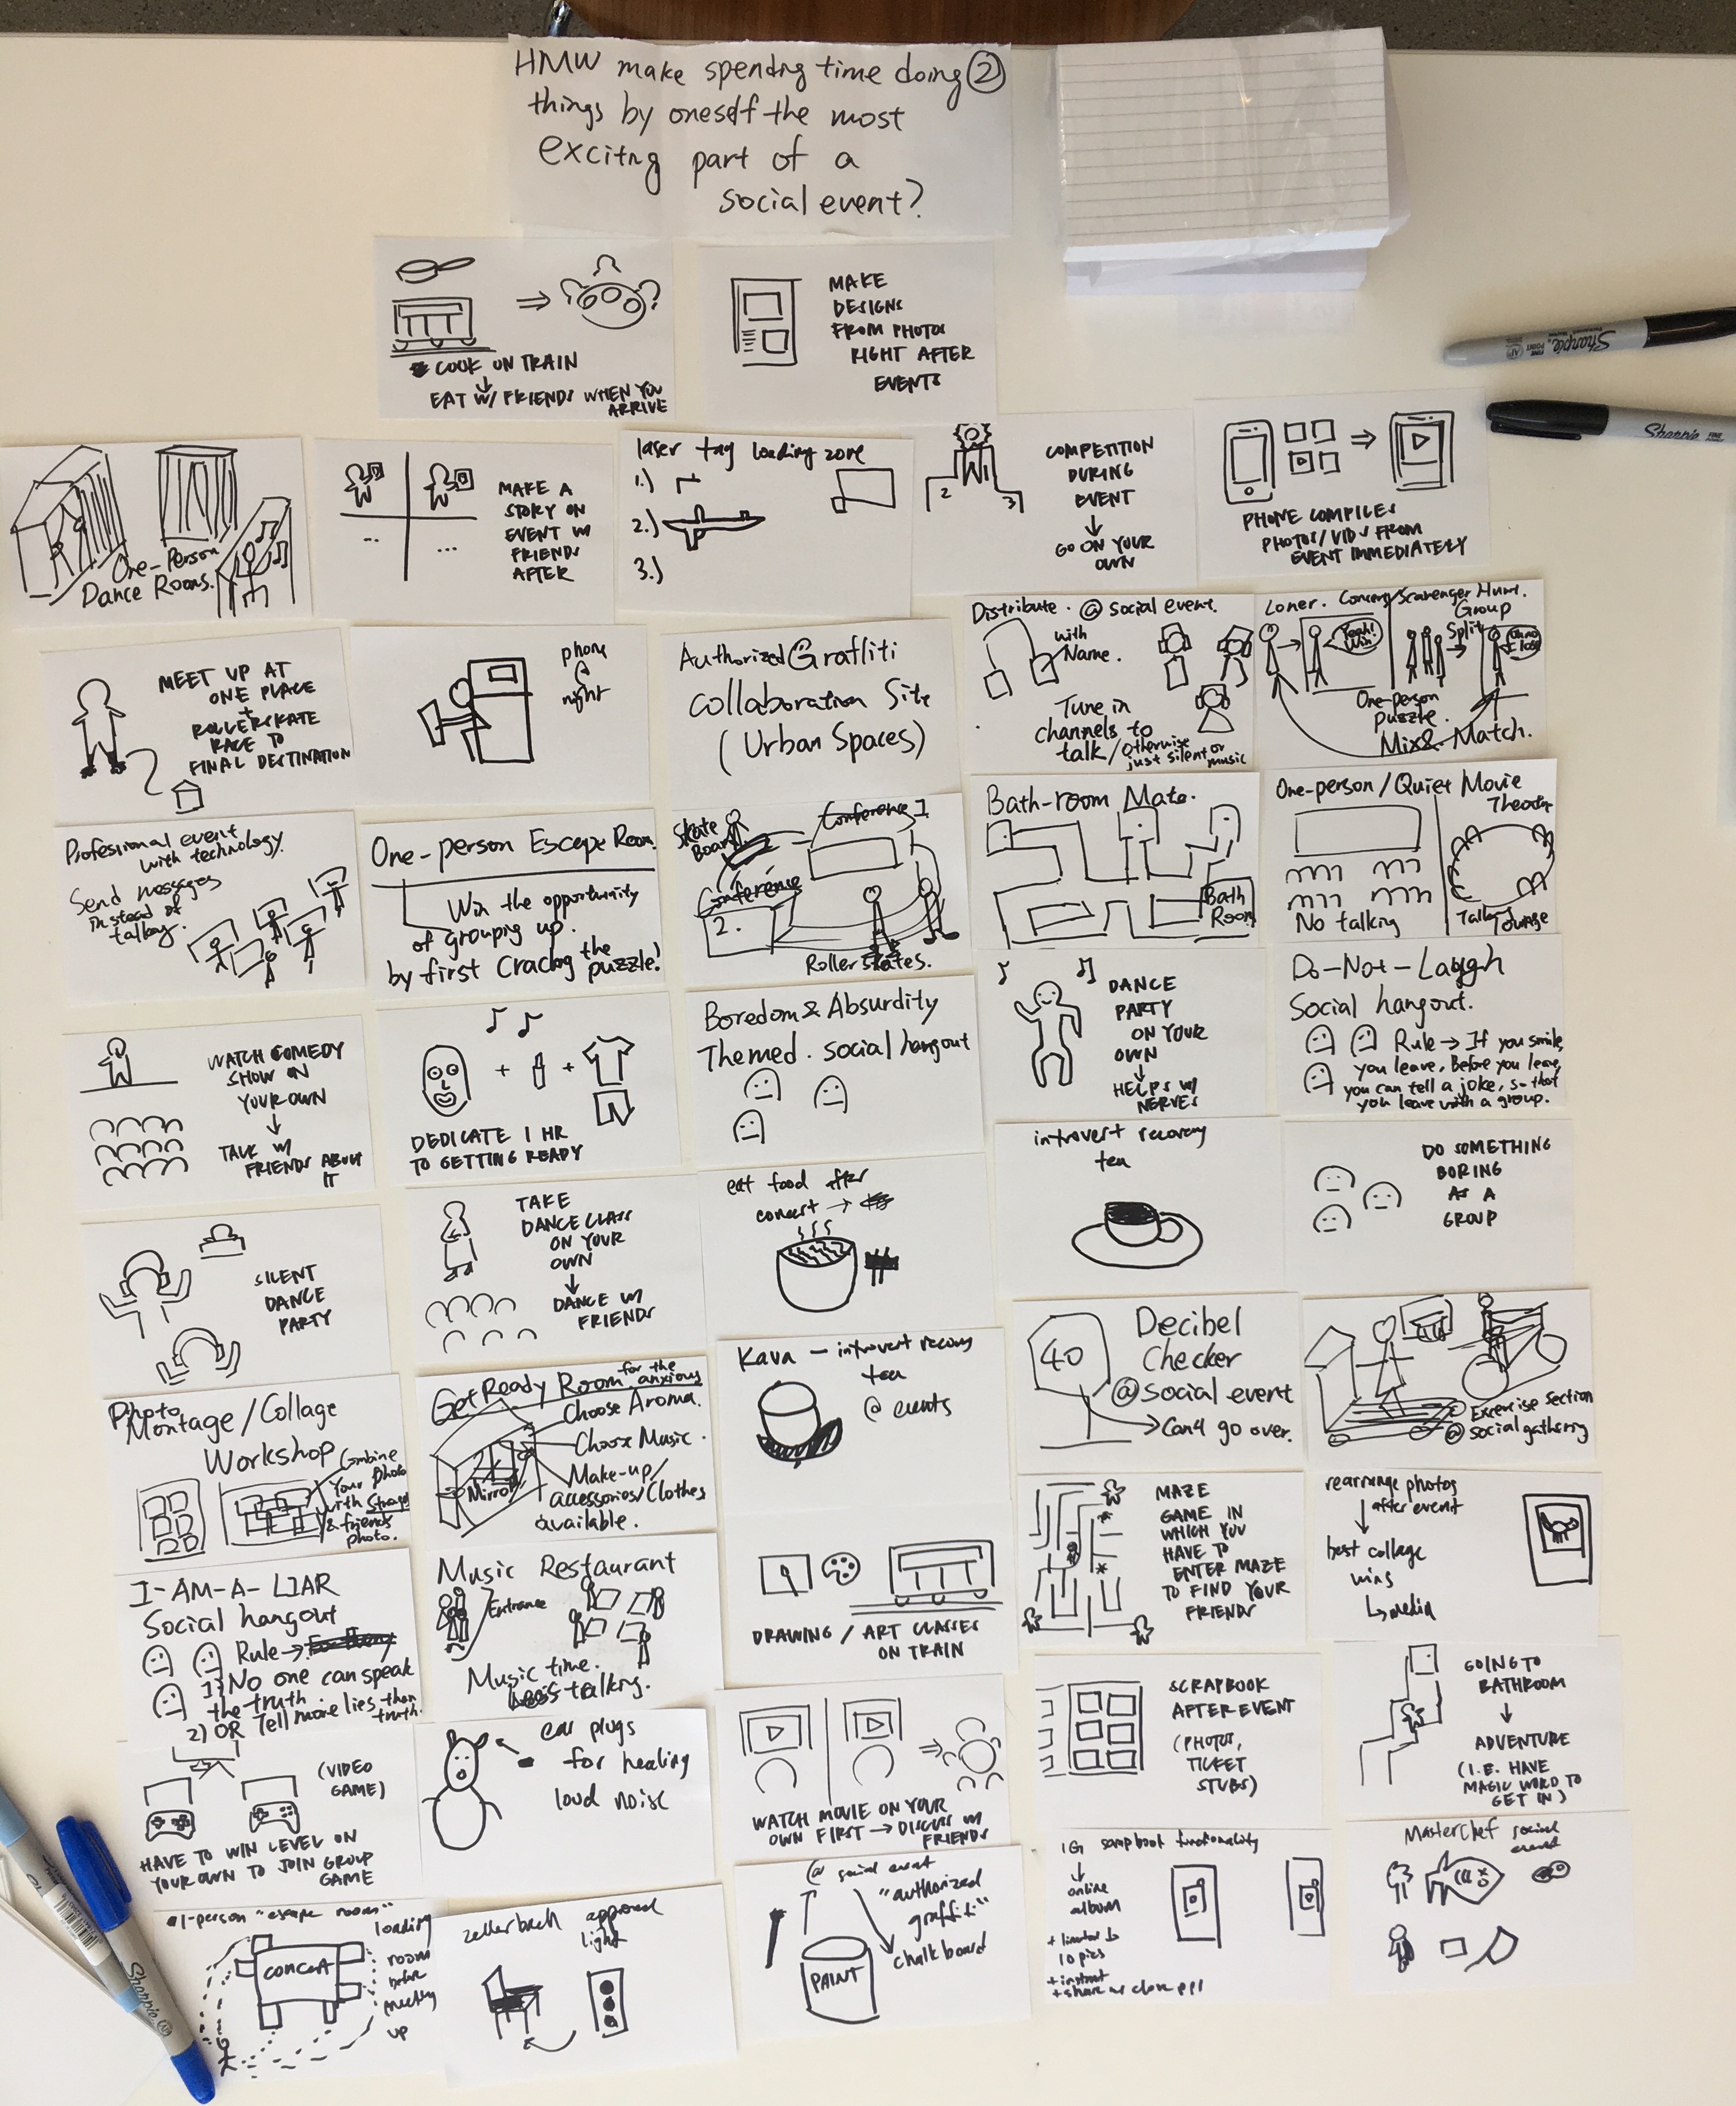 HMW make spending time doing ②
things by oneself the most
exciting part of a
social event?
COOK ON TRAIN
EAT W/ FRIENDS WHEN YOU
ARRIVE
MAKE
DESIGNS
FROM PHOTOS
RIGHT AFTER
EVENTS
Sharpie
Sharpie
One-Person
Dance Rooms.
MAKE A
STORY ON
EVENT W/
FRIENDS
AFTER
laser tag loading zone
1.)
2.)
3.)
2 3
COMPETITION
DURING
EVENT
GO ON YOUR
OWN
PHONE COMPILES
PHOTOS/VIDS FROM
EVENT IMMEDIATELY
MEET UP AT
ONE PLACE
+
ROLLERSKATE
RACE TO
FINAL DESTINATION
phone
@
night
Authorized Grafliti
Collaboration Site
(Urban Spaces)
Distribute. @ social event.
with
Name.
Tune in
channels to
talk/otherwise
just silent or
music
Loner. Scavenger Hunt.
Group
Yeah!
Win
Split
One-person
puzzle.
Mix & Match.
Professional event
with technology.
Send messages
instead of
talking.
One-person Escape Room.
Win the opportunity
of grouping up.
by first Cracking the puzzle!
Skate
Board
Conference 1
Conference
2.
Roller skates.
Bath-room Mate.
Bath
Room
One-person/Quiet Movie
Theater
No talking
Talking
Lounge
WATCH COMEDY
SHOW ON
YOUR OWN
TALK W/
FRIENDS ABOUT
IT
DEDICATE 1 HR
TO GETTING READY
Boredom & Absurdity
Themed. social hangout
DANCE
PARTY
ON YOUR
OWN
HELPS W/
NERVES
Do-Not-Laugh
Social hangout.
Rule → If you smile,
you leave, Before you leave,
you can tell a joke, so that
you leave with a group.
SILENT
DANCE
PARTY
TAKE
DANCE CLASS
ON YOUR
OWN
DANCE W/
FRIENDS
eat food after
concert →
introvert recovery
tea
DO SOMETHING
BORING
AS A
GROUP
Photo
Montage/Collage
Workshop
Combine
Your photo
with
& friends
photo.
Get Ready Room for the
anxious
Choose Aroma.
Choose Music.
Mirror
Make-up/
accessories/Clothes
available.
Kava - introvert recovery
tea
@ events
40
Decibel
Checker
@social event
Can't go over.
Excercise section
@ social gathering
I-AM-A-LIAR
Social hangout
Rule →
1) No one can speak
the truth
2) OR Tell more lies than
truth.
Music Restaurant
Entrance
Music time.
Less talking.
DRAWING / ART CLASSES
ON TRAIN
MAZE
GAME IN
WHICH YOU
HAVE TO
ENTER MAZE
TO FIND YOUR
FRIENDS
rearrange photos
after event
best collage
wins
media
(VIDEO
GAME)
HAVE TO WIN LEVEL ON
YOUR OWN TO JOIN GROUP
GAME
ear plugs
for healing
loud noise
WATCH MOVIE ON YOUR
OWN FIRST → DISCUSS W/
FRIENDS
SCRAPBOOK
AFTER EVENT
(PHOTOS,
TICKET
STUBS)
GOING TO
BATHROOM
ADVENTURE
(I.E. HAVE
MAGIC WORD TO
GET IN)
1-person "escape room"
CONCERT
loading
room
before
meeting
up
zellerbach approved
light
@ social event
"authorized
graffiti"
chalkboard
PAINT
IG scrapbook functionality
online
album
+ limited to
10 pics
+ instant
+ share w/ close ppl
Masterchef social
event
Sharpie